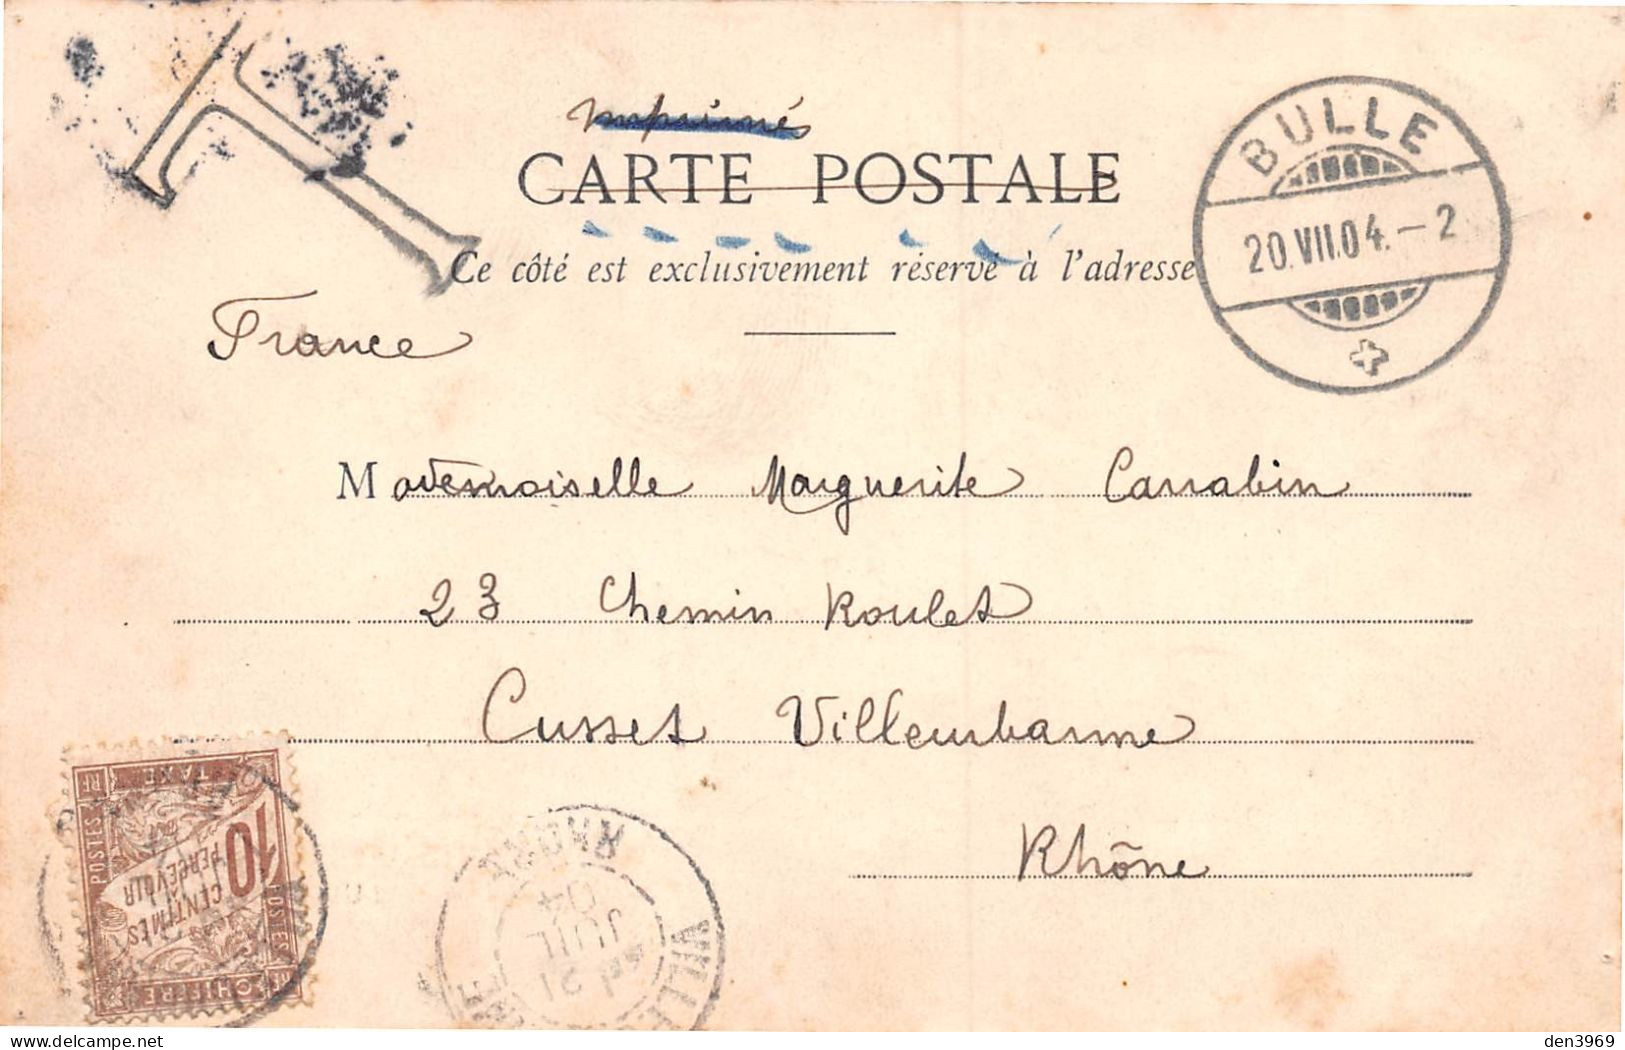 T
Imprimés
CARTE POSTALE
Ce côté est exclusivement réservé à l'adresse
BULLE
20.VII.04.-2
France
Mademoiselle Marguerite Carrabin
23 Chemin Roulet
Cusset Villeurbanne
Rhône
RF POSTES RF
TAXE
10
CENTIMES
PERCEVOIR
POSTES
CHIFFRE
RHONE
21
JUIL
04
den3969